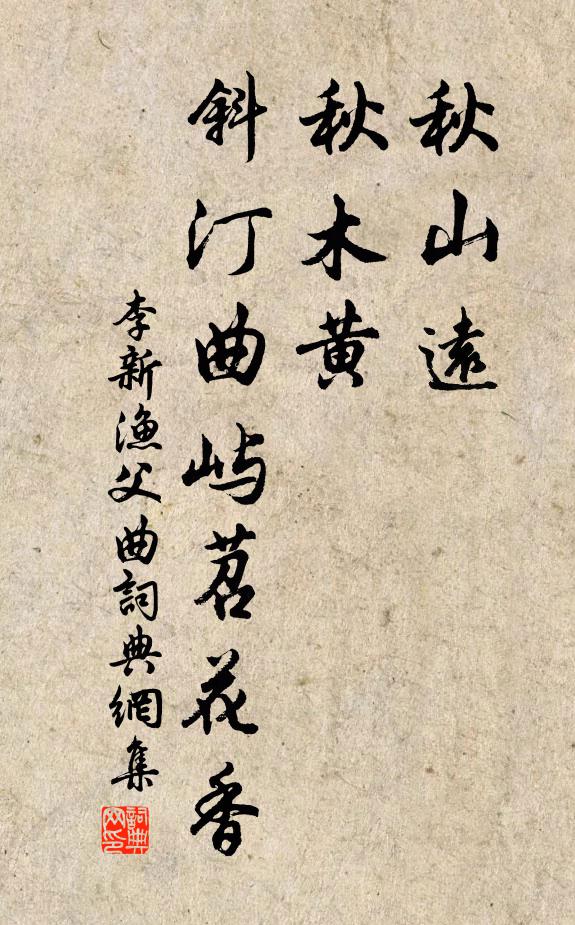 秋山遠
秋木黄
斜汀曲屿苕花香
李新漁父曲詞典網集
詞典网印